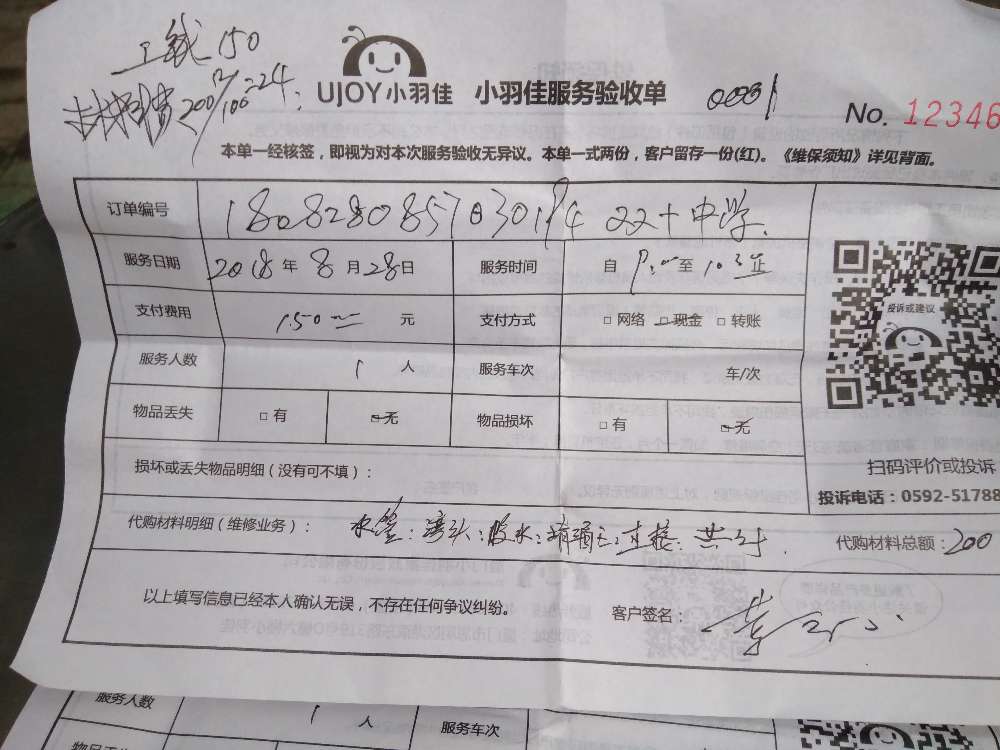 工钱150
材料费200
UJOY小羽佳 小羽佳服务验收单 0001
No. 12346
本单一经核签，即视为对本次服务验收无异议。本单一式两份，客户留存一份(红)。《维保须知》详见背面。
订单编号 二十中学
服务日期 2018年8月28日 服务时间 自 至
支付费用 150 元 支付方式 □网络 □现金 □转账
服务人数 1 人 服务车次 车/次
物品丢失 □有 □无 物品损坏 □有 □无
投诉或建议
扫码评价或投诉
投诉电话：0592-51788
损坏或丢失物品明细（没有可不填）：
代购材料明细（维修业务）： 水管：弯头：胶水： 直接： 代购材料总额：200
以上填写信息已经本人确认无误，不存在任何争议纠纷。 客户签名：
服务人数 1 人 服务车次